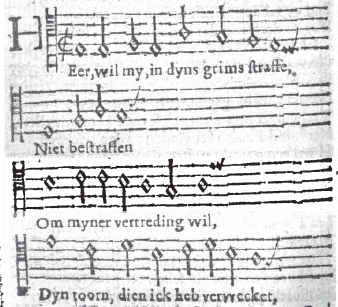 I]Eer, wil my, in dyns grims straffe,
Niet bestraffen
Om myner vertreding wil,
Dyn toorn, dien ick heb verwecket,